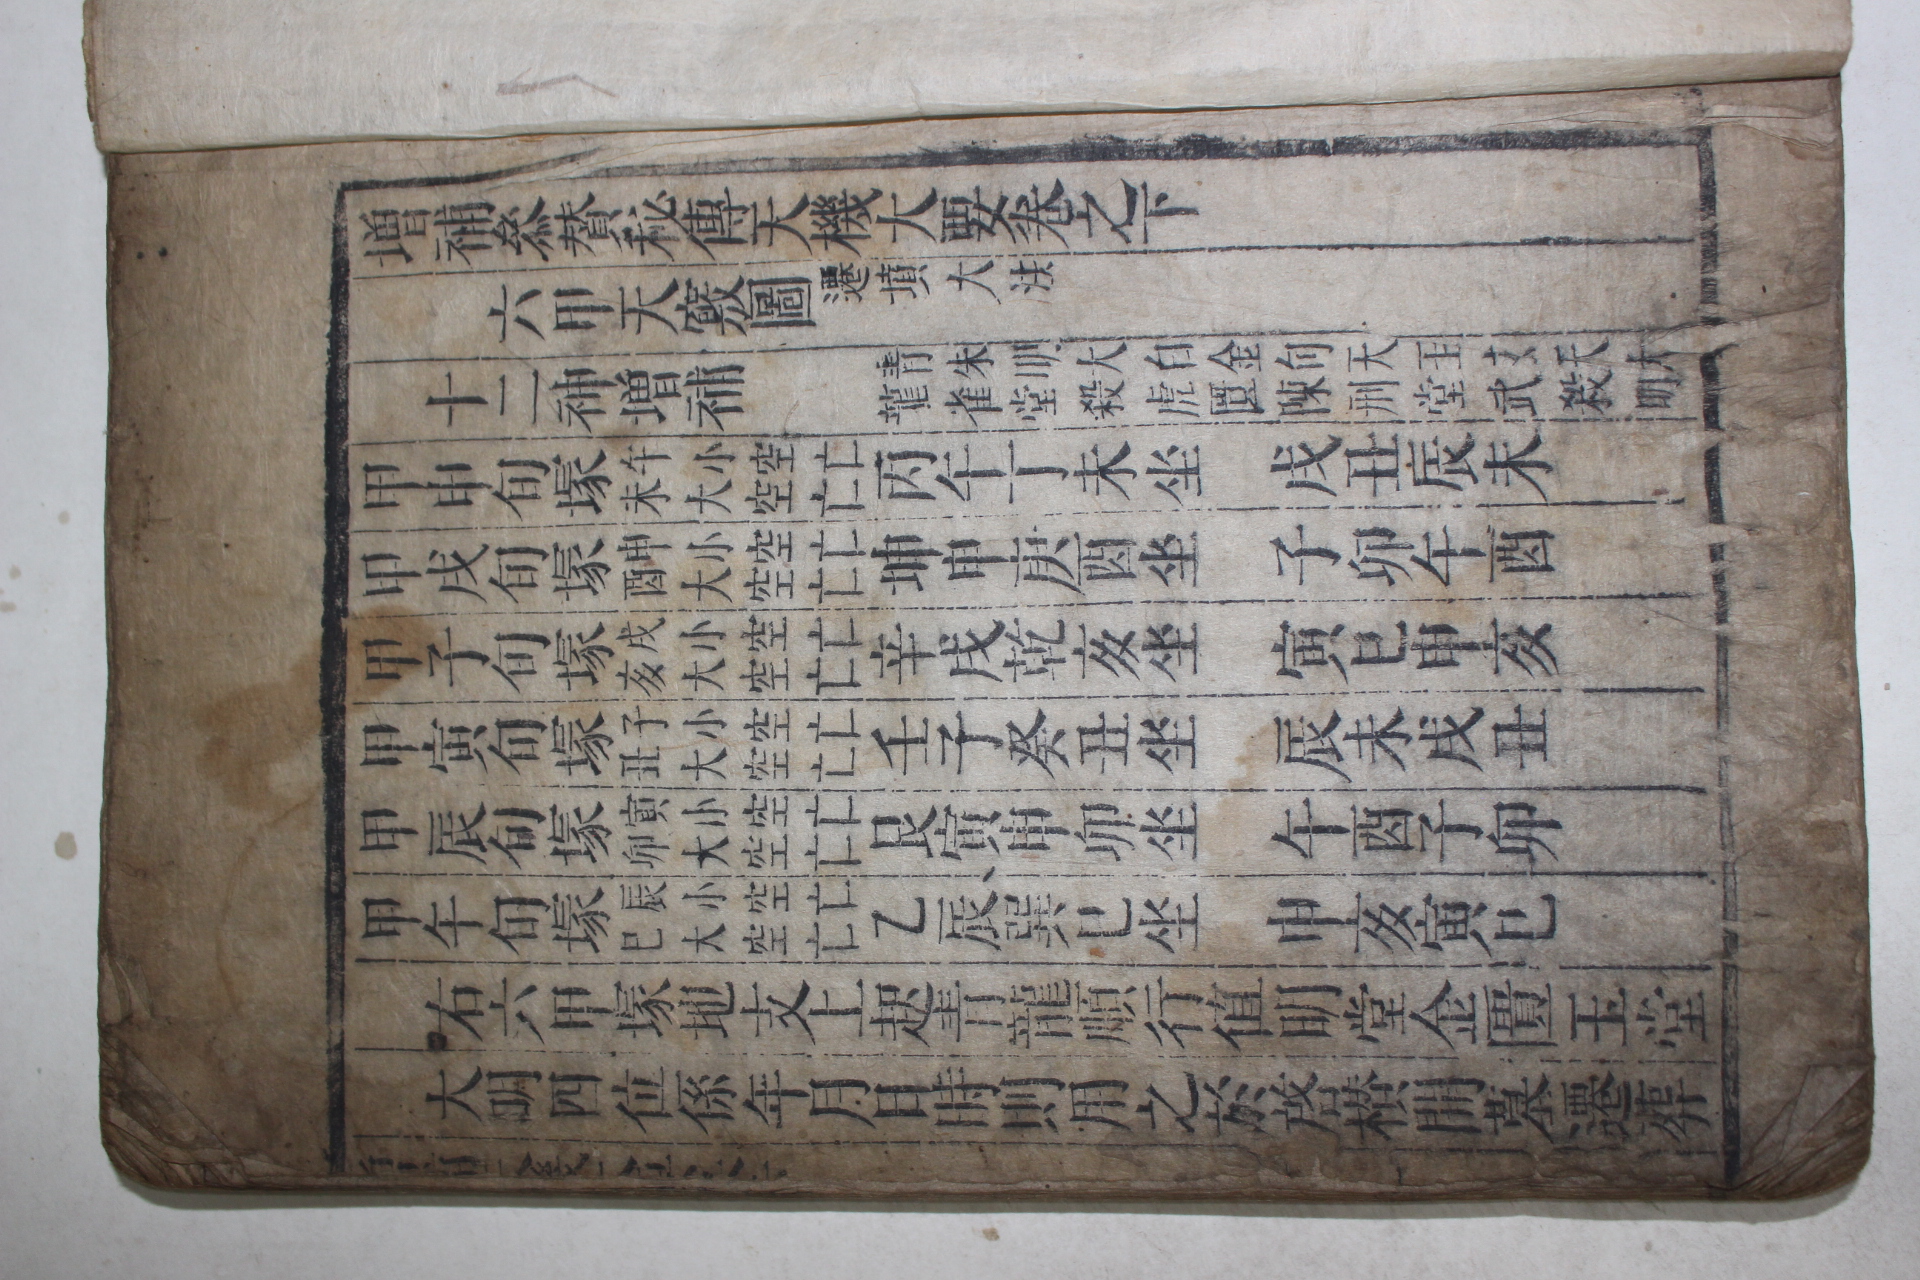 增補參贊秘傳天機大要卷之下
六甲天竅圖 遷墳大法
十二神增補 青龍 朱雀 明堂 大殺 白虎 金匱 句陳 天刑 玉堂 玄武 天殺 大明
甲申旬塚 午小空亡 未大空亡 丙午丁未坐 戌丑辰未
甲戌旬塚 申小空亡 酉大空亡 坤申庚酉坐 子卯午酉
甲子旬塚 戌小空亡 亥大空亡 辛戌乾亥坐 寅巳申亥
甲寅旬塚 子小空亡 丑大空亡 壬子癸丑坐 辰未戌丑
甲辰旬塚 寅小空亡 卯大空亡 艮寅申卯坐 午酉子卯
甲午旬塚 辰小空亡 巳大空亡 乙辰巽巳坐 申亥寅巳
右六甲塚地支上起青龍順行值明堂金匱玉堂
大明四位係年月日時則用之於啓櫕開墓遷葬